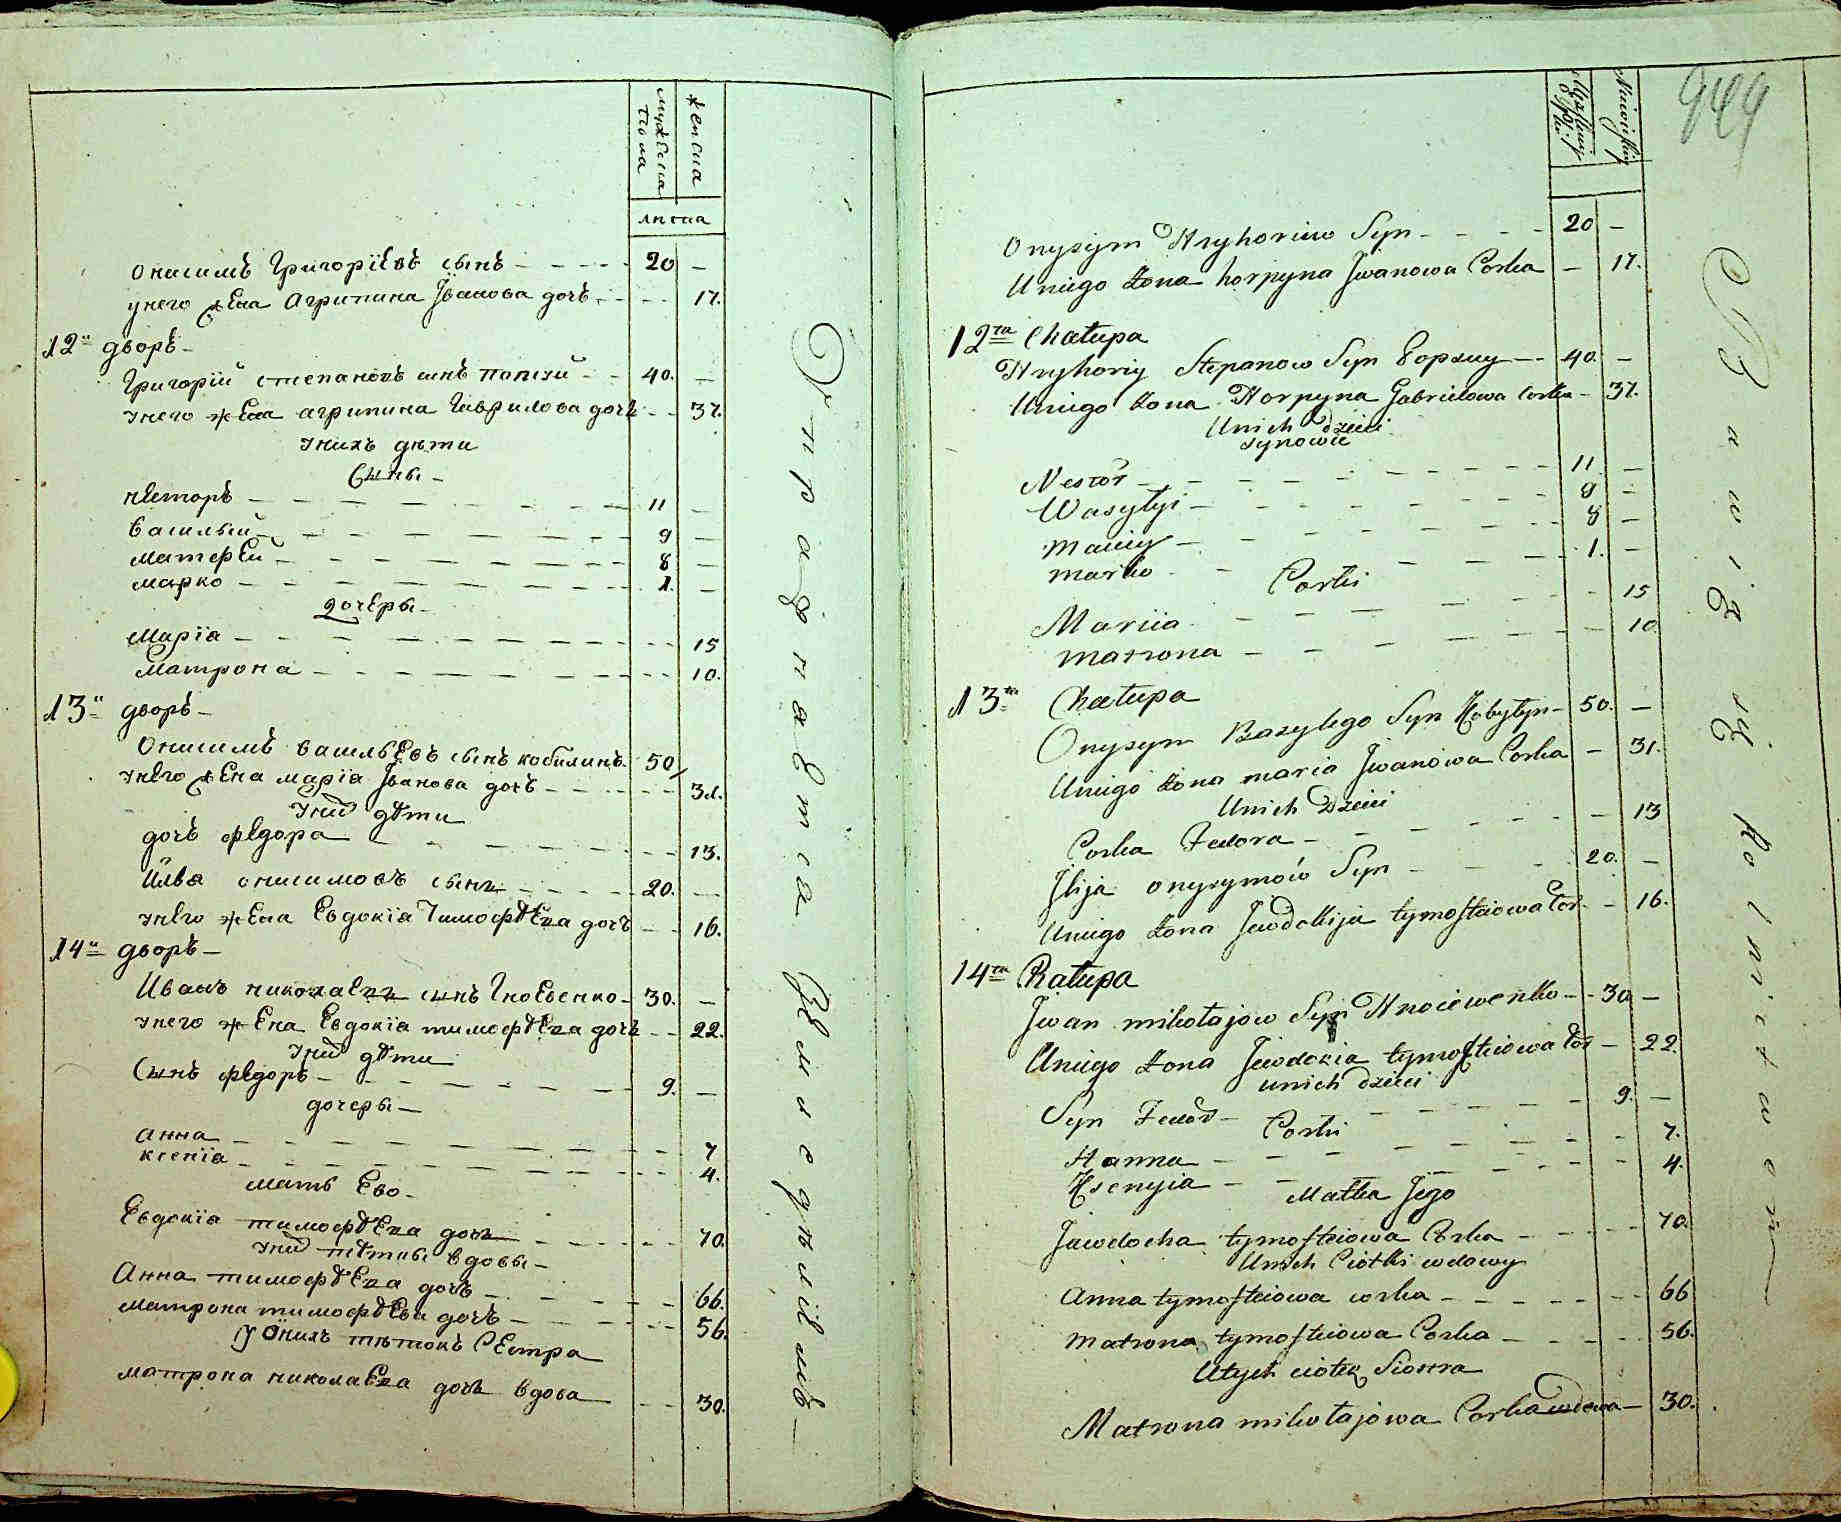 мужеска пола
женска
лѣта
Онисимъ Григорїевъ сынъ - - - - 20 -
унего жена Агрипина Іванова дочъ - - - - 17.
12й дворъ -
Григорїй степановъ сынъ - - 40. -
унего жена агрипина Гаврилова дочъ - - 37.
унихъ дѣти
Сыны -
несторъ - 11 -
василый - 9 -
матфей - 8 -
марко - 1. -
дочеры -
Марїа - 15
Матрона - 10.
13й дворъ -
Онисимъ васильевъ сынъ кобилинъ - 50
унего жена марїа Іванова дочъ - 31.
уних дѣти
дочъ федора - 13.
Илья онисимовъ сынъ - 20. -
унего жена Евдокїа Тимофѣева дочъ - - 16.
14й дворъ -
Иванъ николаевъ сынъ Гноевенко - 30. -
унего жена Евдокїа тимофѣева дочъ - - 22.
уних дѣти
Сынъ федоръ - 9. -
дочеры -
анна - 7
ксенїа - 4.
мать Его -
Евдокїа тимофѣева дочъ - 70.
уних тѣтки вдовы -
Анна тимофѣева дочъ - 66.
матрона тимофѣева дочъ - 56.
у оних тѣтокъ Сестра
матрона николаева дочъ вдова - - 30.
944
Onysym Hryhoriiw Syn - - - - 20 -
Uniego żona horpyna Jwanowa Corka - 17.
12ta Chałupa
Hryhoriy Stepanow Syn - - 40. -
Uniego żona Horpyna Gabriełowa Corka - 37.
Unich dzieci
synowie
Nestor - 11. -
Wasylyi - 9 -
Maciey - 8 -
marko - 1. -
Corki
Mariia - 15
Matrona - 10.
13ta Chałupa
Onysym Bazylego Syn Kobylyn - 50. -
Uniego żona maria Jwanowa Corka - 31.
Unich Dzieci
Corka Fedora - 13
Jlija onysymów Syn - 20. -
Uniego żona Jewdokija tymofteiowa Cor - 16.
14ta Chałupa
Jwan mikołajow Syn Hnoiewenko - - 30 -
Uniego żona Jewdokia tymofteiowa Cor - 22.
unich dzieci
Syn Fedor - 9. -
Corki
Hanna - 7.
Ksenyia - 4.
Matka Jego
Jawdocha tymofteiowa Corka - 70.
Unich Ciotki wdowy
Anna tymofteiowa corka - 66
Matrona tymofteiowa Corka - 56.
Utych ciotek Siostra
Matrona mikołajowa Corka wdowa - 30.